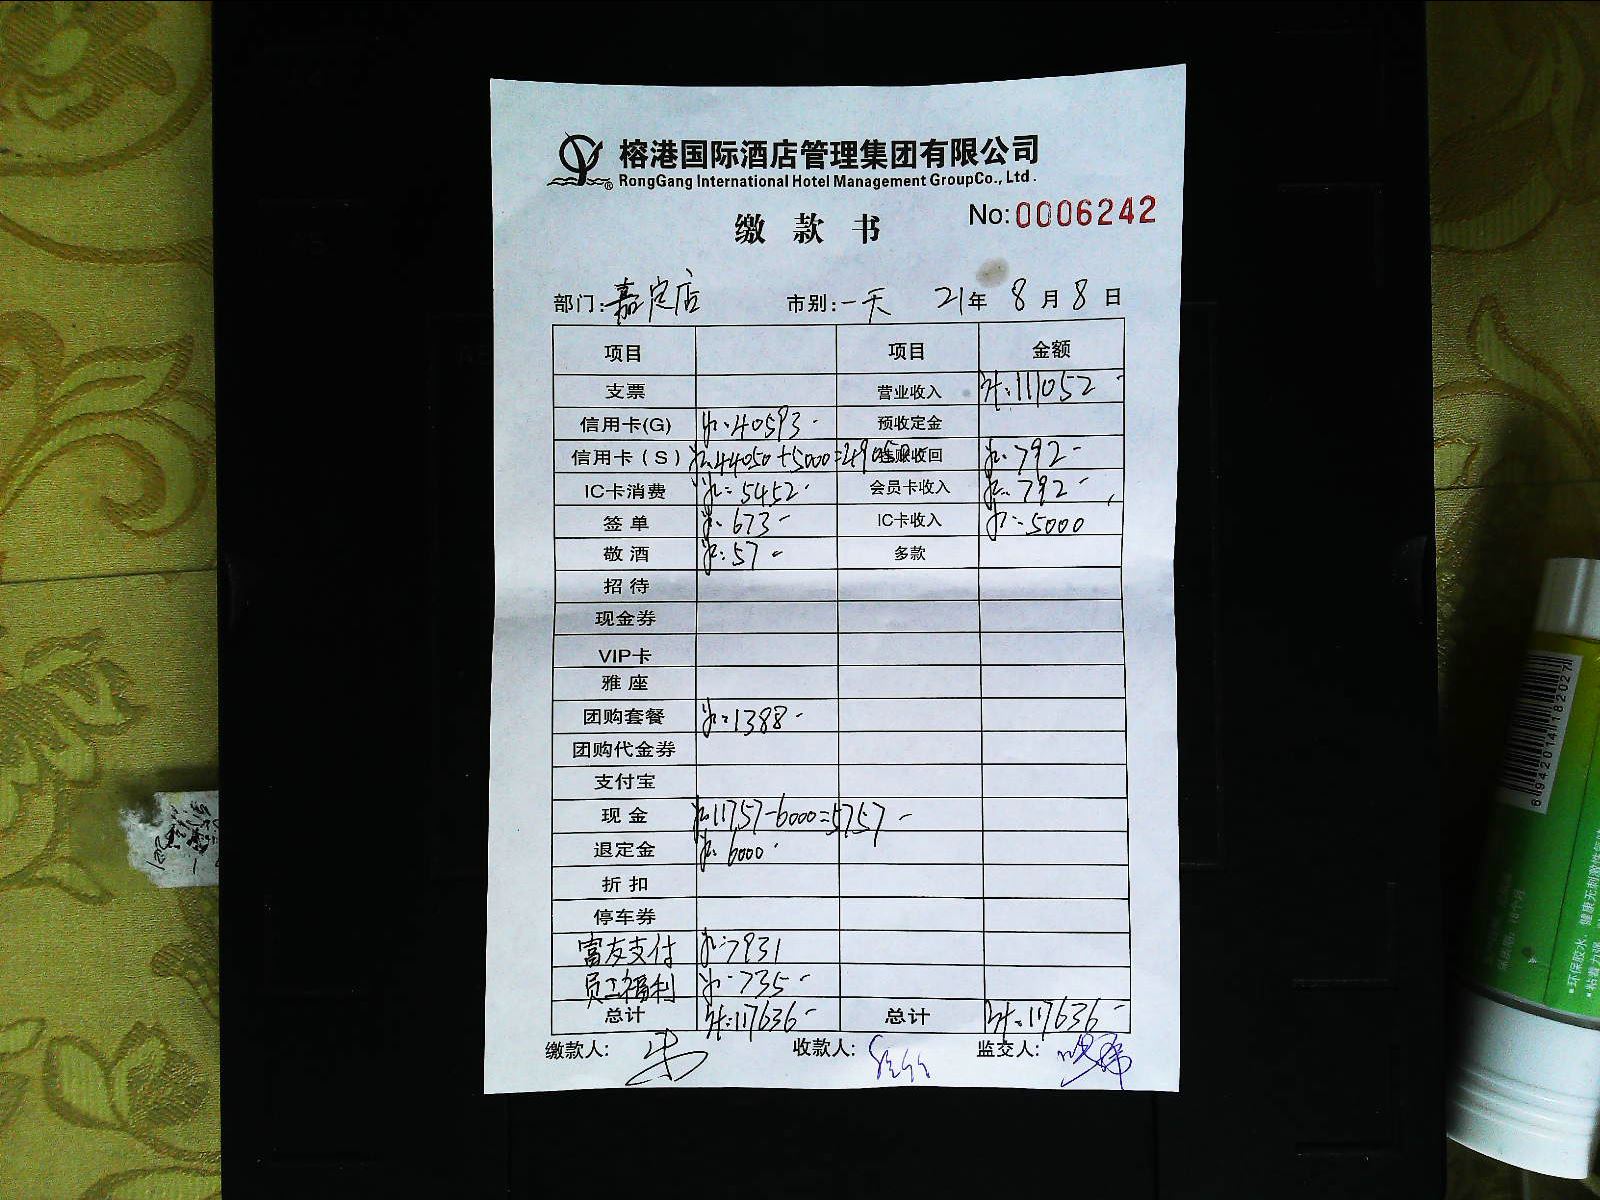 榕港国际酒店管理集团有限公司
RongGang International Hotel Management GroupCo., Ltd.
缴款书
No:0006242
部门:嘉定店 市别:一天 21年8月8日
项目 项目 金额
支票 营业收入 计:111052-
信用卡(G) 计:40593- 预收定金
信用卡(S) 计:44050+5000=49050 挂账收回 计:792-
IC卡消费 计:5452- 会员卡收入 计:792-
签单 计:673- IC卡收入 计:5000
敬酒 计:57- 多款
招待
现金券
VIP卡
雅座
团购套餐 计:1388-
团购代金券
支付宝
现金 计:11757-6000=5757-
退定金 计:6000-
折扣
停车券
富友支付 计:7931
员工福利 计:735-
总计 计:117636- 总计 计:117636-
缴款人: 收款人: 监交人:
6942014182027